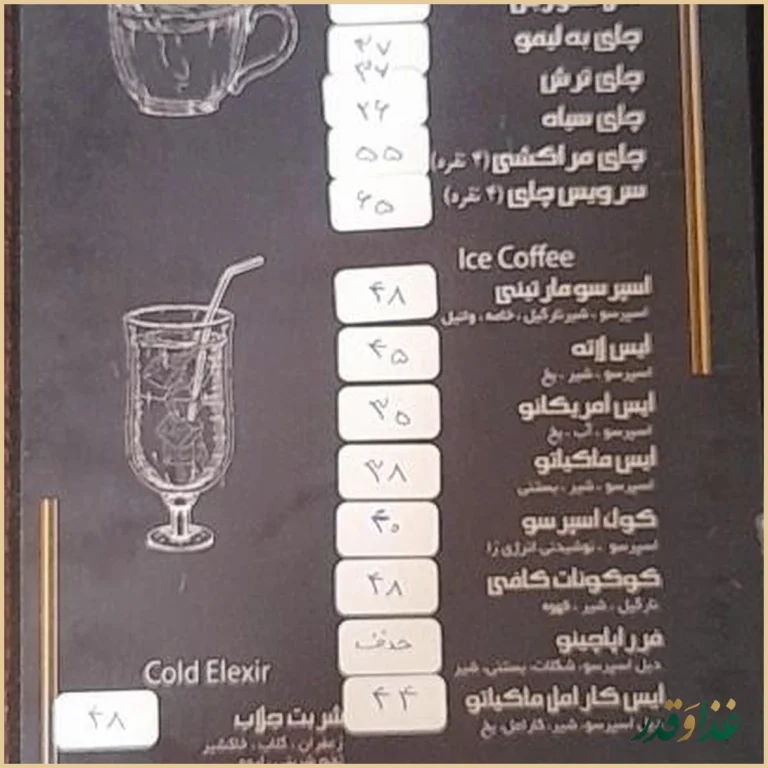 چای به لیمو ۳۷
چای ترش ۳۷
چای سیاه ۲۶
چای مراکشی (۴ نفره) ۵۵
سرویس چای (۴ نفره) ۶۵
Ice Coffee
اسپرسو مارتینی ۴۸
اسپرسو ، شیرنارگیل ، خامه ، وانیل
آیس لاته ۴۵
اسپرسو ، شیر ، یخ
آیس امریکانو ۳۵
اسپرسو ، آب ، یخ
آیس ماکیاتو ۳۸
اسپرسو ، شیر ، بستنی
کولد اسپرسو ۴۰
اسپرسو ، نوشیدنی انرژی زا
کوکونات کافی ۴۸
نارگیل ، شیر ، قهوه
فرراپاچینو حذف
دبل اسپرسو، شکلات، بستنی، شیر
آیس کارامل ماکیاتو ۴۴
دبل اسپرسو، شیر، کارامل، یخ
Cold Elexir
شربت جلاب ۴۸
زعفران ، گلاب ، خاکشیر
غذا و قدر